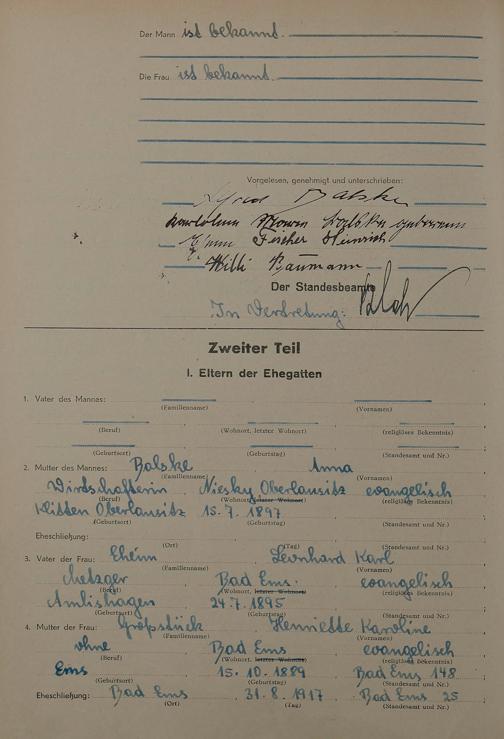 Der Mann ist bekannt.
Die Frau ist bekannt.
Vorgelesen, genehmigt und unterschrieben:
Balske
Balske geborenen
Fischer Heinrich
Willi Baumann
Der Standesbeamte
In Vertretung:
Zweiter Teil
I. Eltern der Ehegatten
1. Vater des Mannes:
(Familienname) (Vornamen)
(Beruf) (Wohnort, letzter Wohnort) (religiöses Bekenntnis)
(Geburtsort) (Geburtstag) (Standesamt und Nr.)
2. Mutter des Mannes: Balske Anna
(Familienname) (Vornamen)
Wirtschafterin Niesky Oberlausitz evangelisch
(Beruf) (Wohnort, letzter Wohnort) (religiöses Bekenntnis)
Klitten Oberlausitz 15.7.1897
(Geburtsort) (Geburtstag) (Standesamt und Nr.)
Eheschließung:
(Ort) (Tag) (Standesamt und Nr.)
3. Vater der Frau: Leonhard Karl
(Familienname) (Vornamen)
Metzger Bad Ems. evangelisch
(Beruf) (Wohnort, letzter Wohnort) (religiöses Bekenntnis)
Amlishagen 24.7.1895
(Geburtsort) (Geburtstag) (Standesamt und Nr.)
4. Mutter der Frau: Großstück Henriette Karoline
(Familienname) (Vornamen)
ohne Bad Ems evangelisch
(Beruf) (Wohnort, letzter Wohnort) (religiöses Bekenntnis)
Ems 15.10.1889 Bad Ems 148
(Geburtsort) (Geburtstag) (Standesamt und Nr.)
Eheschließung: Bad Ems 31.8.1917 Bad Ems 25
(Ort) (Tag) (Standesamt und Nr.)